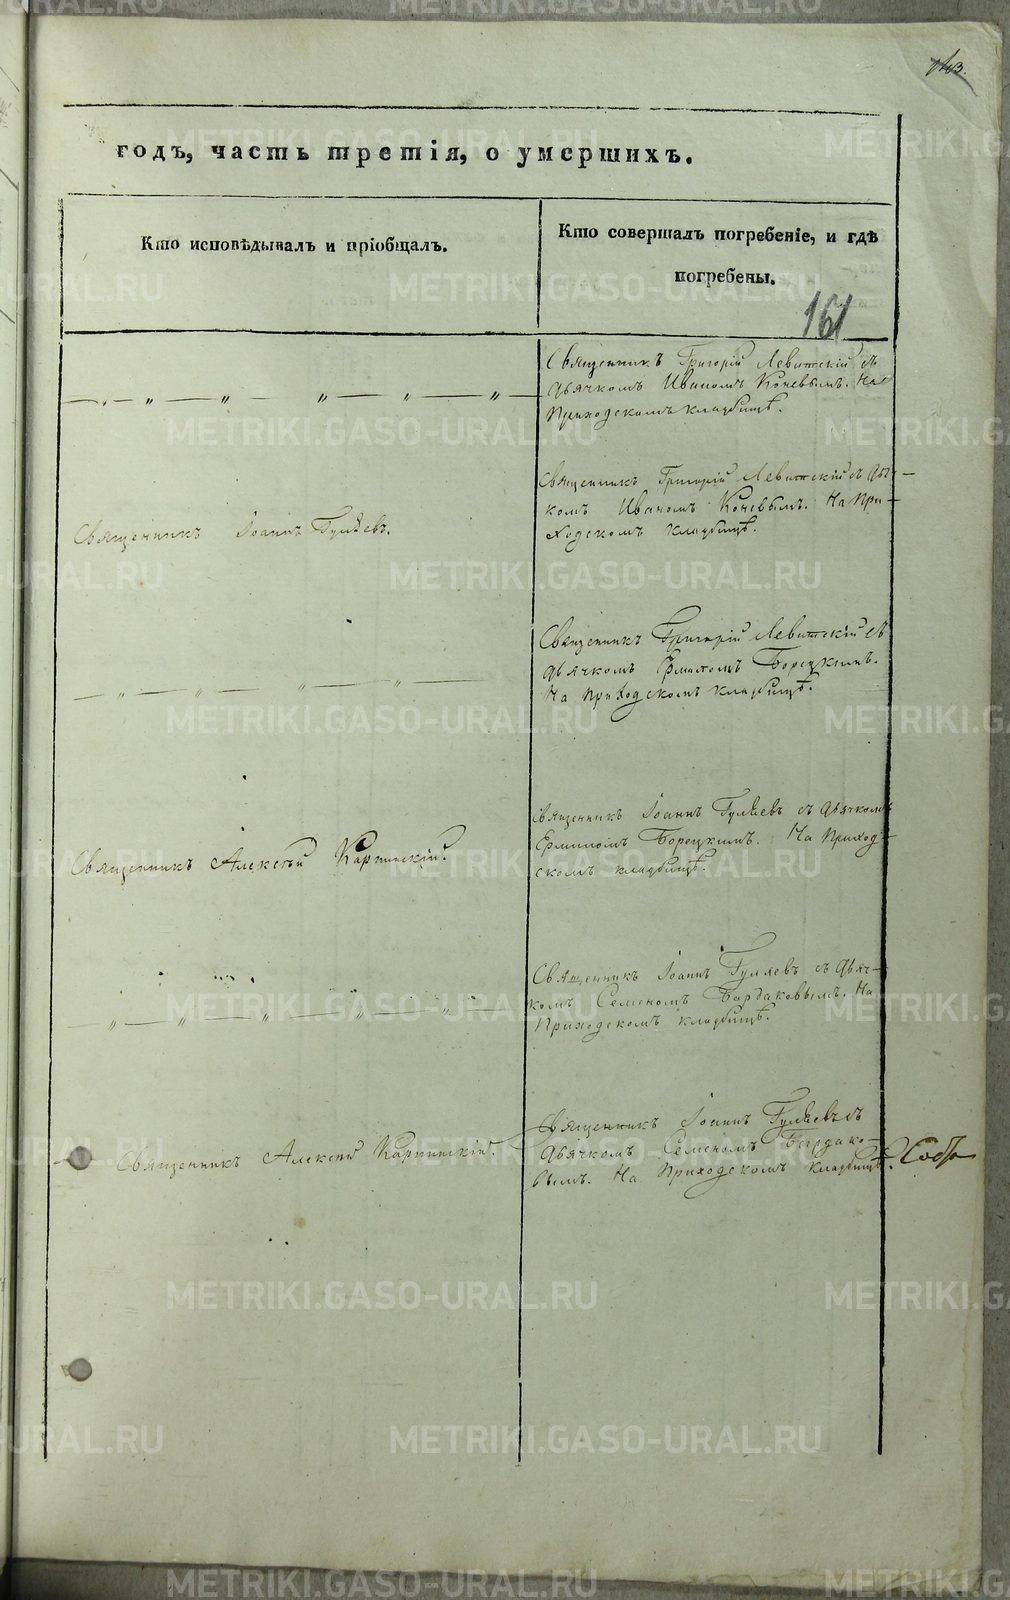 годъ, часть третія, о умершихъ.
Кто исповѣдывалъ и пріобщалъ.
Кто совершалъ погребеніе, и гдѣ
погребены.
161
Священникъ Григорій Левитскій съ
дьячкомъ Иваномъ Кочевымъ. На
Приходскомъ кладбищѣ.
Священникъ Іоаннъ Гуляевъ.
Священникъ Григорій Левитскій съ дьяч-
комъ Иваномъ Кочевымъ. На При-
ходскомъ кладбищѣ.
Священникъ Григорій Левитскій съ
дьячкомъ Ермиломъ Борецкимъ.
На Приходскомъ кладбищѣ.
Священникъ Алексѣй Карпинскій.
Священникъ Іоаннъ Гуляевъ съ дьячкомъ
Ермиломъ Борецкимъ. На Приход-
скомъ кладбищѣ.
Священникъ Іоаннъ Гуляевъ съ дьяч-
комъ Семеномъ Бардаковымъ. На
Приходскомъ кладбищѣ.
Священникъ Алексѣй Карпинскій.
Священникъ Іоаннъ Гуляевъ съ
дьячкомъ Семеномъ Бардако-
вымъ. На Приходскомъ кладбищѣ.
METRIKI.GASO-URAL.RU